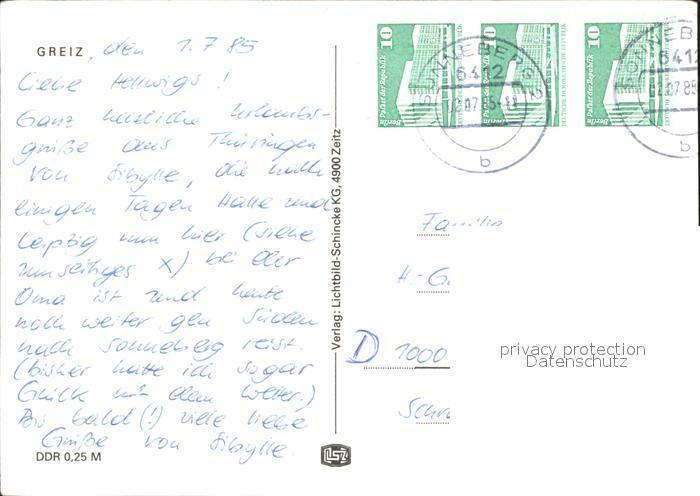 GREIZ, den 1.7.85
Liebe Hellwigs!
Ganz herzliche Urlaubs-
grüße aus Thüringen
von Sibylle, die nach
einigen Tagen Halle und
Leipzig nun hier (siehe
umseitiges X) bei der
Oma ist und heute
noch weiter gen Süden
nach Sonneberg reist.
(bisher hatte ich sogar
Glück mit dem Wetter.)
Bis bald(!) viele liebe
Grüße von Sibylle.
DDR 0,25 M
Verlag: Lichtbild-Schincke KG, 4900 Zeitz
10
Palast der Republik
Berlin
DEUTSCHE DEMOKRATISCHE REPUBLIK
10
Palast der Republik
Berlin
DEUTSCHE DEMOKRATISCHE REPUBLIK
10
Palast der Republik
Berlin
SONNEBERG 2
6412
b
SONNEBERG
6412
02.07.85
Familie
H.-G.
D 1000
privacy protection
Datenschutz